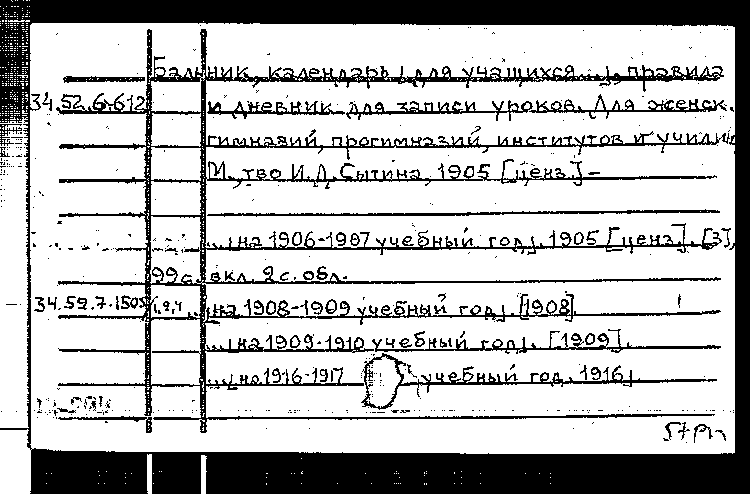 Бальник, календарь [для учащихся...], правила
34.52.6-612 и дневник для записи уроков. Для женск.
гимназий, прогимназий, институтов и училищ
М., тво И.Д. Сытина, 1905 [ценз.] –
...[на 1906-1907 учебный год]. 1905 [ценз.]. [3],
99 с. вкл. 2 с. обл.
34.52.7.1505 1,2,4 ...[на 1908-1909 учебный год]. [1908].
...[на 1909-1910 учебный год]. [1909].
...[на 1916-1917 учебный год. 1916].